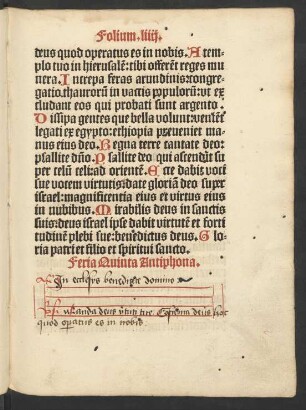 Folium. liiij.
deus quod operatus es in nobis. A tem
plo tuo in hierusalē: tibi offerēt reges mu
nera. Increpa feras arundinis: congre
gatio thaurorū in vaccis populorū: vt ex
cludant eos qui probati sunt argento.
Dissipa gentes que bella volunt: veniēt
legati ex egypto: ethiopia preueniet ma
nus eius deo. Regna terre cantate deo:
psallite dño. Psallite deo qui ascendit su
per celū celi: ad orientē. Ecce dabit vo
ci sue vocem virtutis: date gloriā deo super
israel: magnificentia eius et virtus eius
in nubibus. Mirabilis deus in sanctis
suis: deus israel ipse dabit virtutē et forti
tudinē plebi sue: benedictus deus. Glo
ria patri et filio et spiritui sancto.
Feria Quinta Antiphona.
In ecclesijs benedicite domino
Ps. Manda deus v̄tuti tue. Confirma deus hoc
quod operatus es in nobis